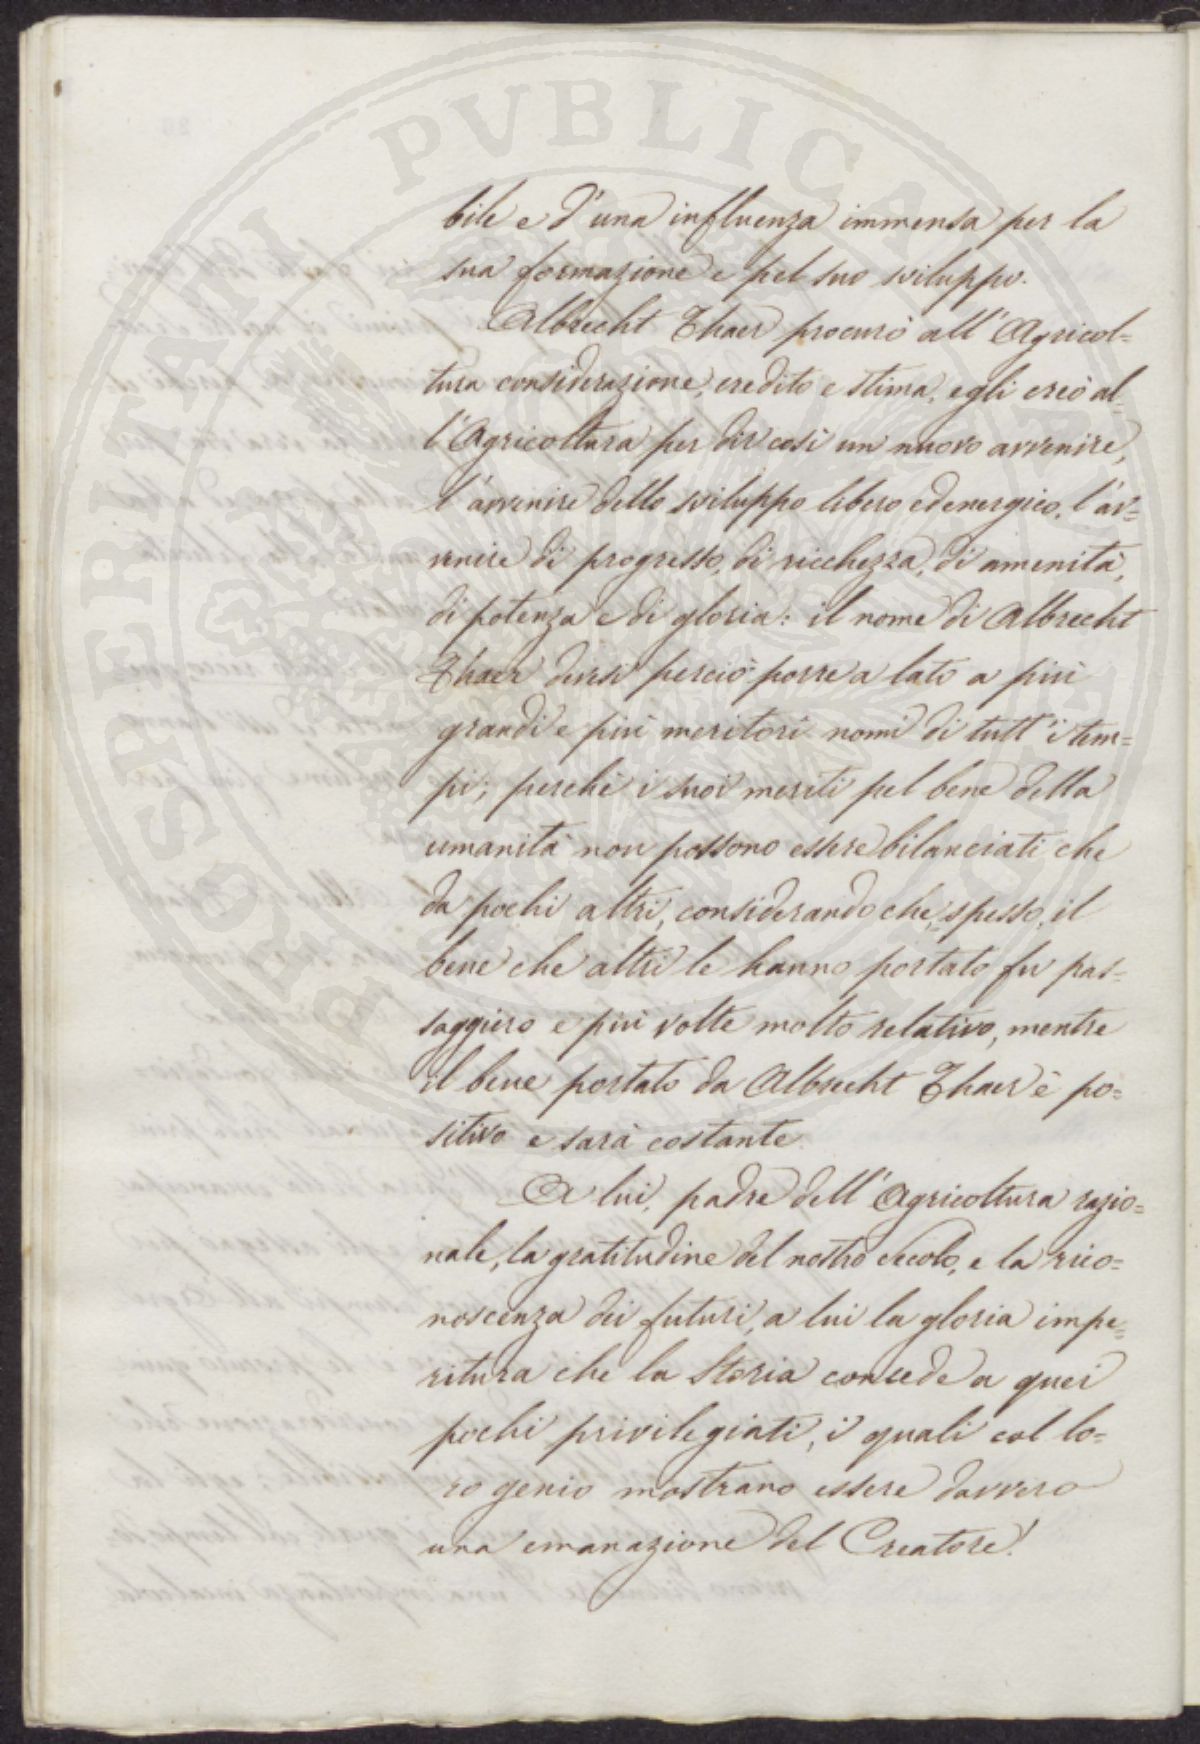 PROSPERITATI PVBLICAE AVGENDAE
bile e d'una influenza immensa per la
sua formazione e pel suo sviluppo.
Albrecht Thaer procurò all'Agricol=
tura considerazione, credito e stima, egli creò al=
l'Agricoltura per dir così un nuovo avvenire,
l'avvenire dello sviluppo libero ed energico, l'av=
venire di progresso, di ricchezza, di amenità,
di potenza e di gloria: il nome di Albrecht
Thaer devesi perciò porre a lato a più
grandi e più meritori nomi di tutt'i tem=
pi; perchè i suoi meriti pel bene della
umanità non possono essere bilanciati che
da pochi altri, considerando che, spesso, il
bene che altri le hanno portato fu pas=
saggiero e più volte molto relativo, mentre
il bene portato da Albrecht Thaer è po=
sitivo e sarà costante.
A lui, padre dell'Agricoltura razio=
nale, la gratitudine del nostro secolo, e la rico=
noscenza dei futuri, a lui la gloria impe=
ritura che la Storia concede a quei
pochi privilegiati, i quali col lo=
ro genio mostrano essere davvero
una emanazione del Creatore!